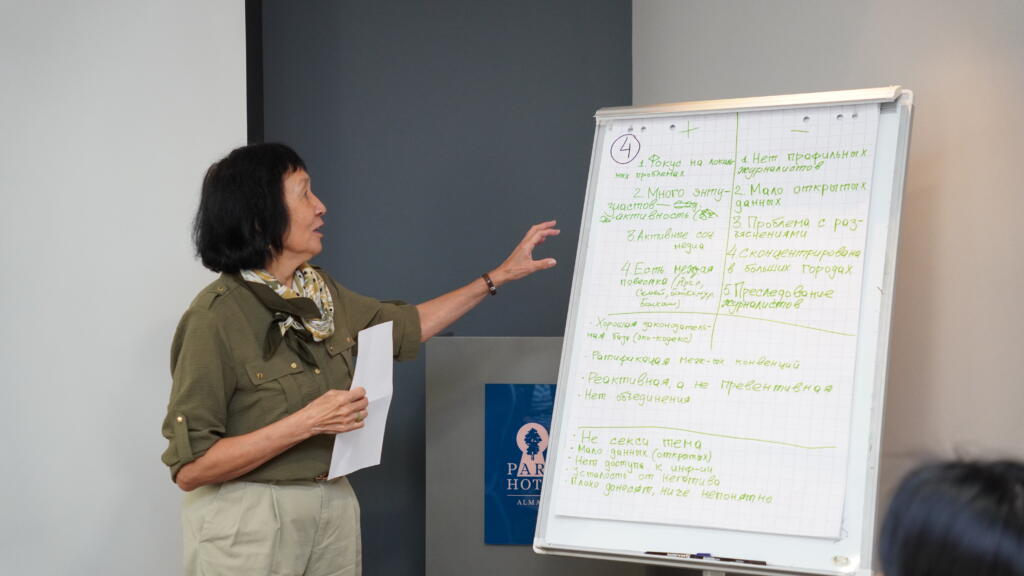 4
+
1. Фокус на локаль-
ных проблемах
2. Много энту-
зиастов —
активность
3 Активные соц
медиа
4. Есть межд-ая
повестка (Арал,
Семей, Байконур,
Балхаш)
—
1. Нет профильных
журналистов
2. Мало открытых
данных
3. Проблема с раз-
ъяснениями
4. Сконцентрирована
в больших городах
5. Преследование
журналистов
· Хорошая законодатель-
ная база (эко-кодекс)
· Ратификация меж-ых конвенций
· Реактивная, а не превентивная
· Нет объединения
· Не секси тема
· Мало данных (открытых)
· Нет доступа к инф-ии
· Усталость от негатива
· Плохо доносят, ниче непонятно
PAR
HOTE
ALMA